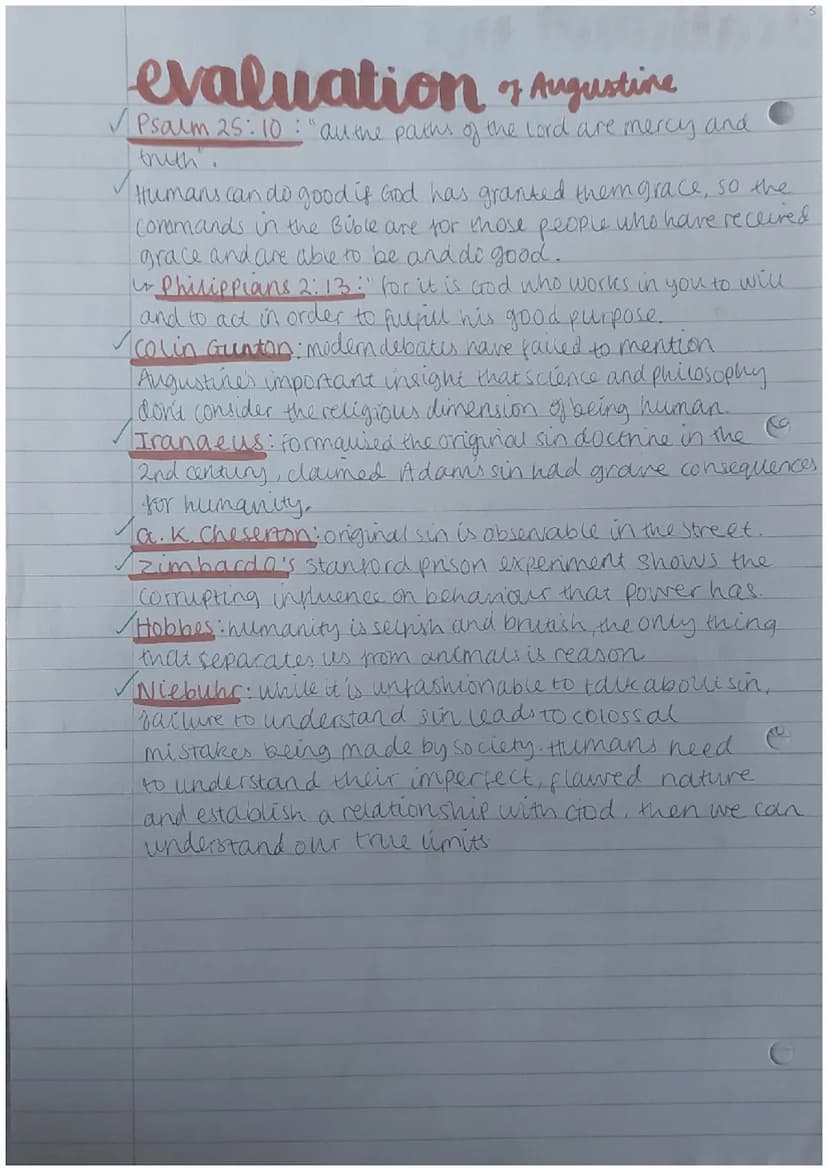 5
evaluation of Augustine
Psalm 25:10 : "all the paths of the Lord are mercy and
truth".
Humans can do good if God has granted them grace, so the
commands in the Bible are for those people who have received
grace and are able to be and do good.
↳ Philippians 2:13: "for it is God who works in you to will
and to act in order to fulfill his good purpose.
Colin Gunton: modern debates have failed to mention
Augustine's important insight that science and philosophy
don't consider the religious dimension of being human.
Iranaeus: formalised the original sin doctrine in the
2nd century, claimed Adam's sin had grave consequences
for humanity.
G.K. Cheserton: original sin is observable in the street.
Zimbardo's stanford prison experiment shows the
corrupting influence on behaviour that power has.
Hobbes: humanity is selfish and brutish, the only thing
that separates us from animals is reason
Niebuhr: while it is unfashionable to talk about sin,
failure to understand sin leads to colossal
mistakes being made by society. Humans need
to understand their imperfect, flawed nature
and establish a relationship with God, then we can
understand our true limits